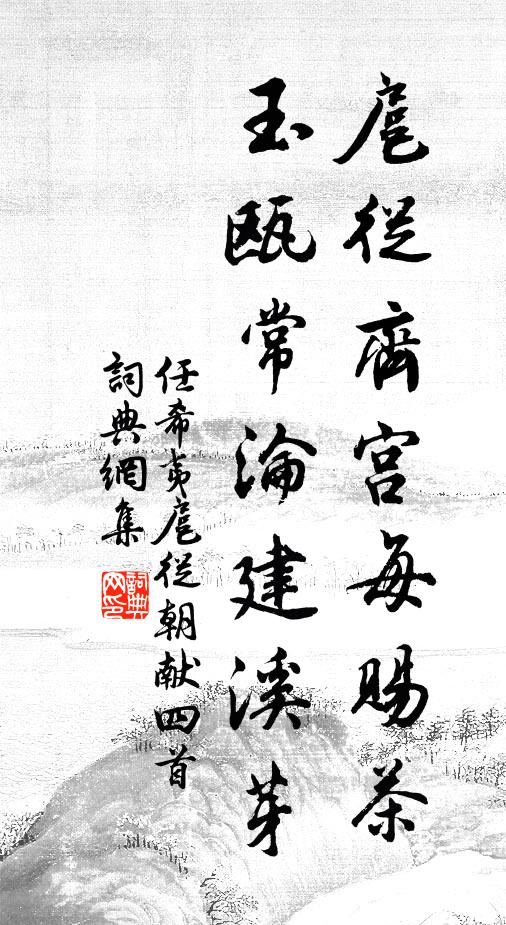 扈從齊宮每賜茶
玉甌常瀹建溪芽
任希夷扈從朝献四首
詞典網集
詞典网印